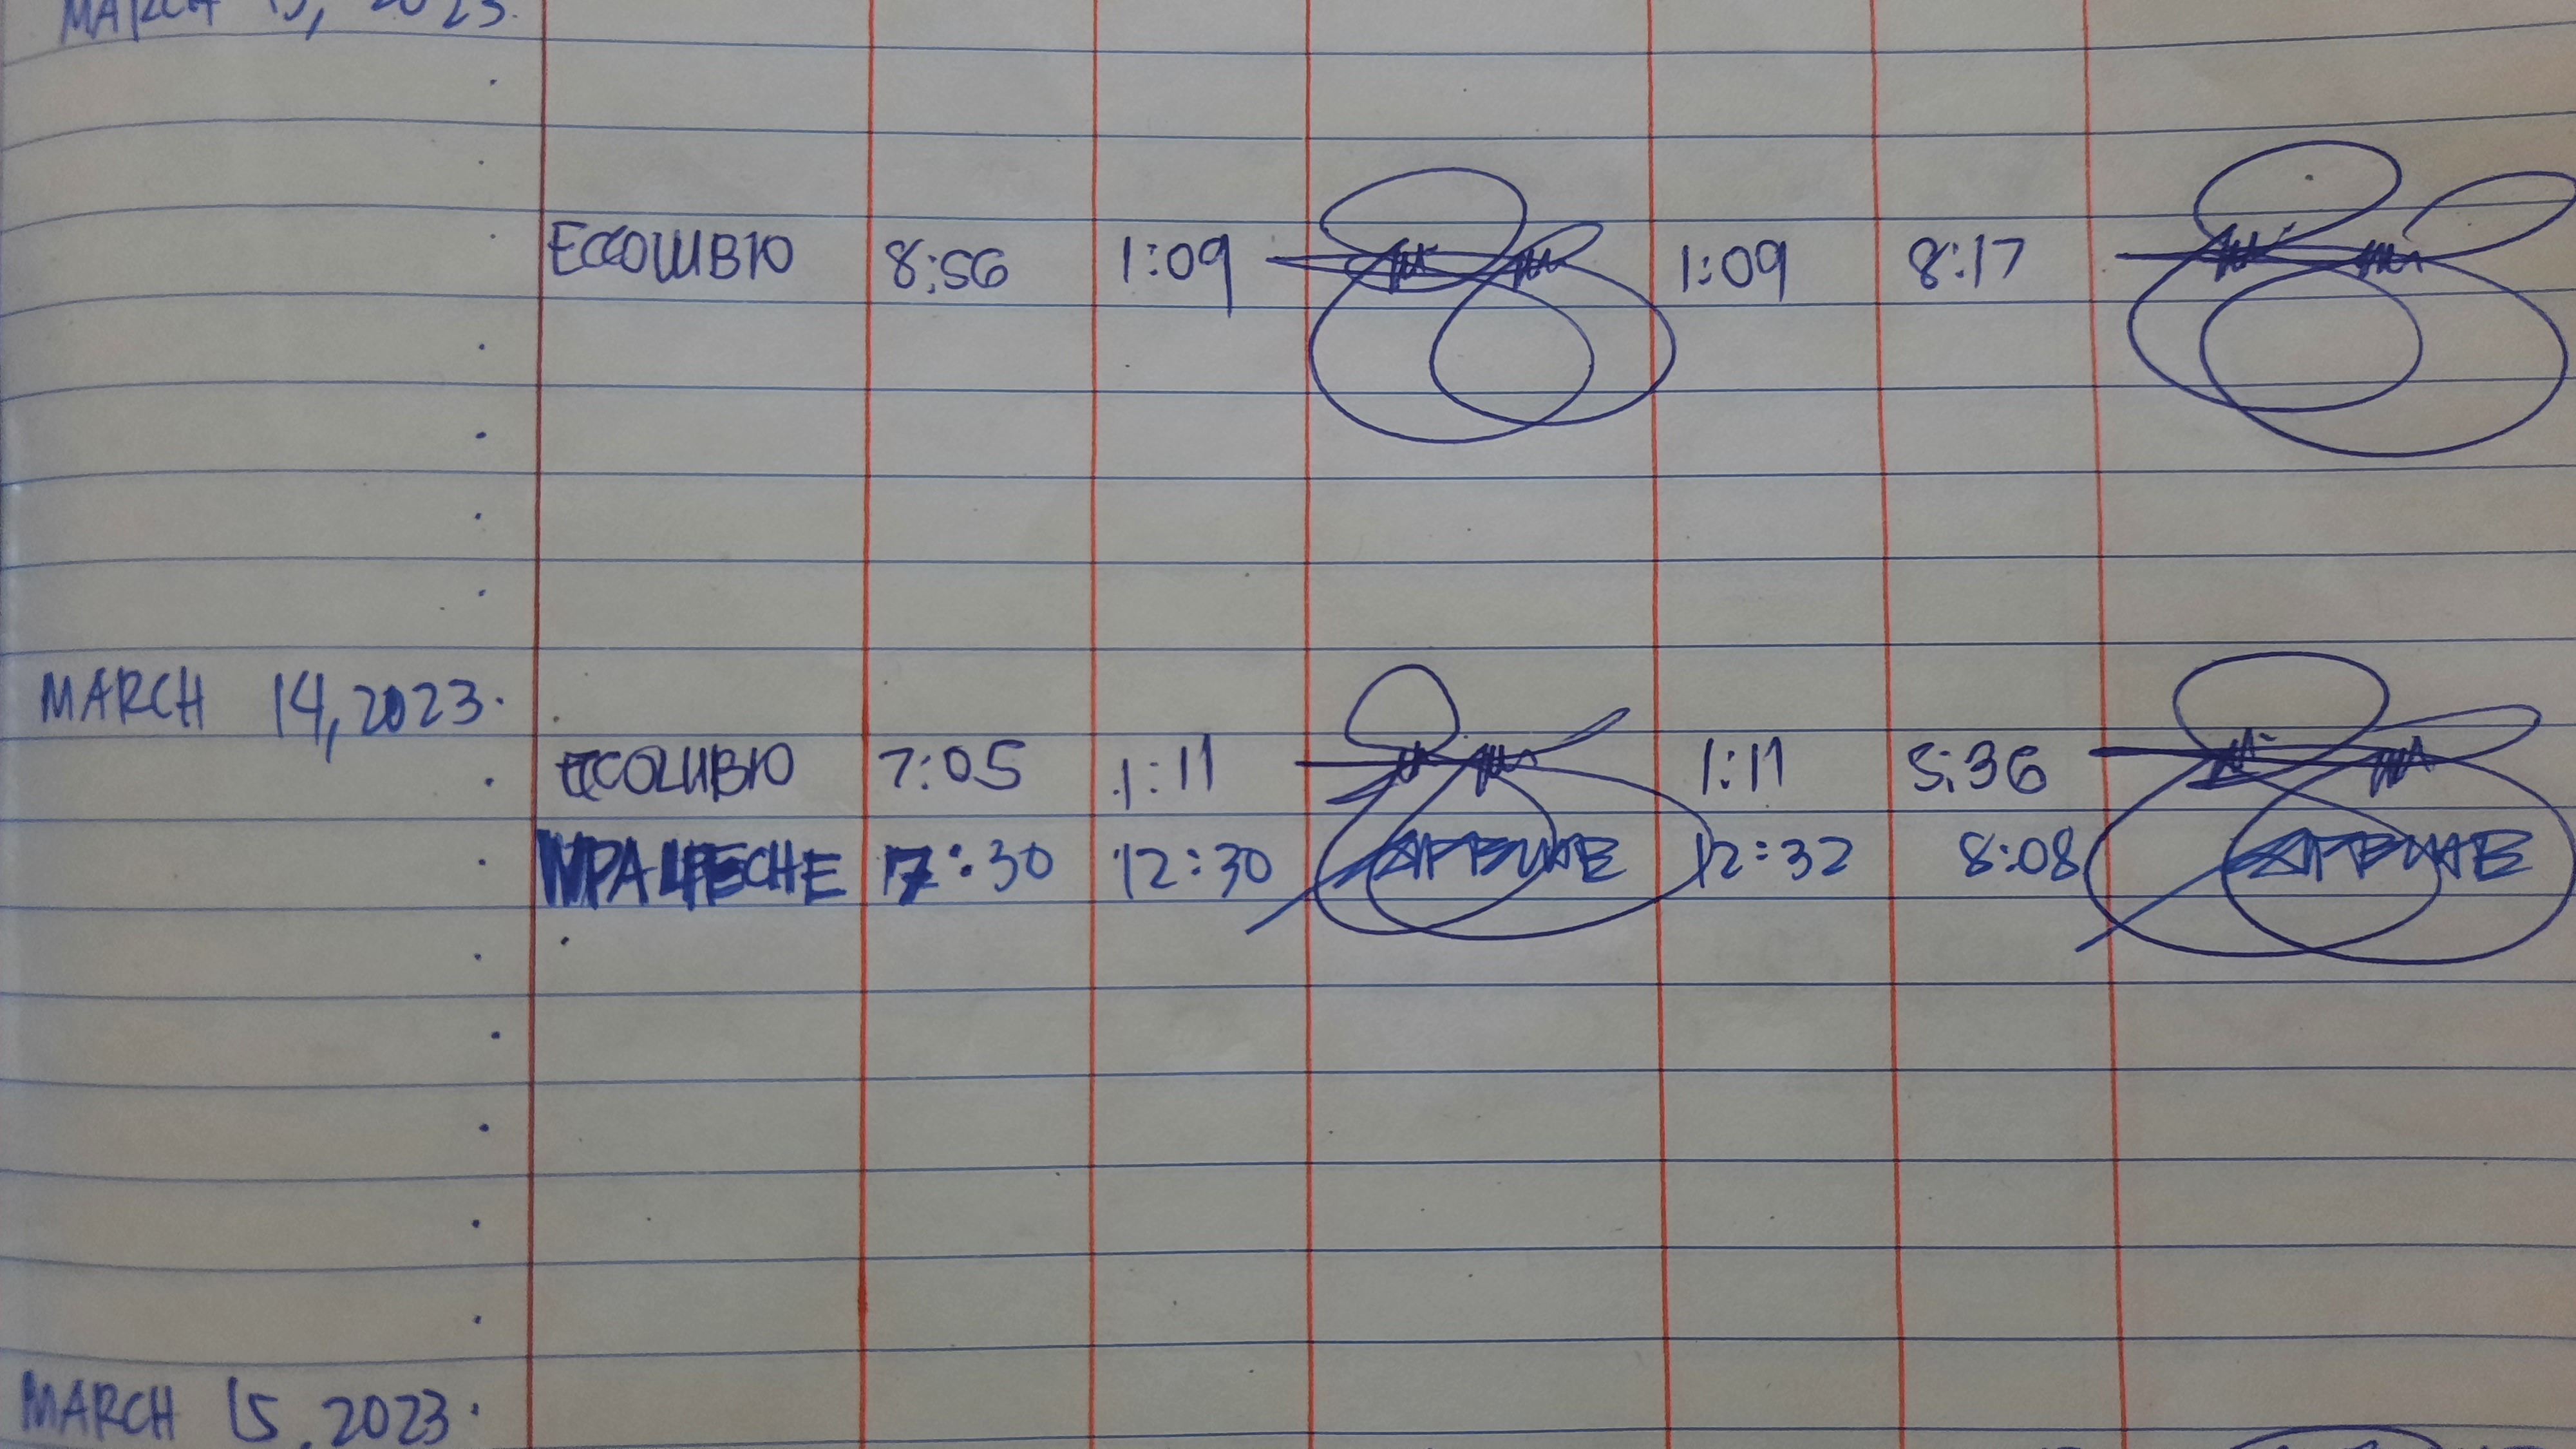 MARCH 13, 2023.
ECCOLUBIO 8:56 1:09 1:09 8:17
MARCH 14, 2023.
ECCOLUBIO 7:05 1:11 1:11 5:36
7:30 12:30 12:32 8:08
MARCH 15, 2023.